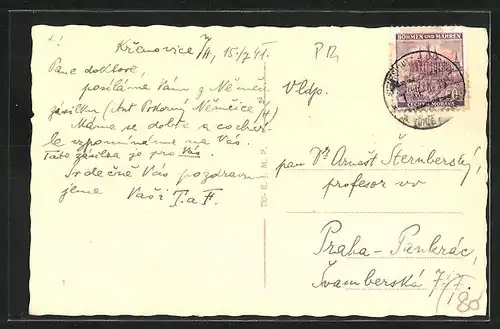 Křenovice n/H, 15./7 41.
Pane doktore,
posíláme Vám z Němčic
zásilku (Ant Pokorný Němčice n/H)
Máme se dobře a
vzpomínáme na Vás.
Tato zásilka je pro Vás.
Srdečně Vás pozdravu-
jeme Vaši T. a F.
BÖHMEN UND MÄHREN
ČECHY A MORAVA
Vldp.
pan Dr Arnošt Šternberský,
profesor vv
Praha - Pankrác,
Švamberská
180